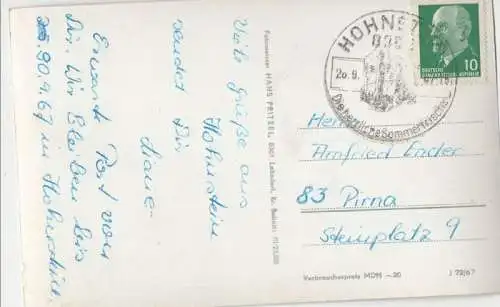 Viele Grüße aus
Hohnstein
sendet Dir
Erwarte Post von
Dir. Wir bleiben bis
30.9.67 in Hohnstein.
Fotomeister HANS PRITZEL, 8301
HOHNST
20.9.
Die herrliche Sommerfrische
DEUTSCHE
DEMOKRATISCHE REPUBLIK
10
Amfried Ender
83 Pirna
Steinplatz 9
Verbraucherpreis MDN -.20
J 72/67